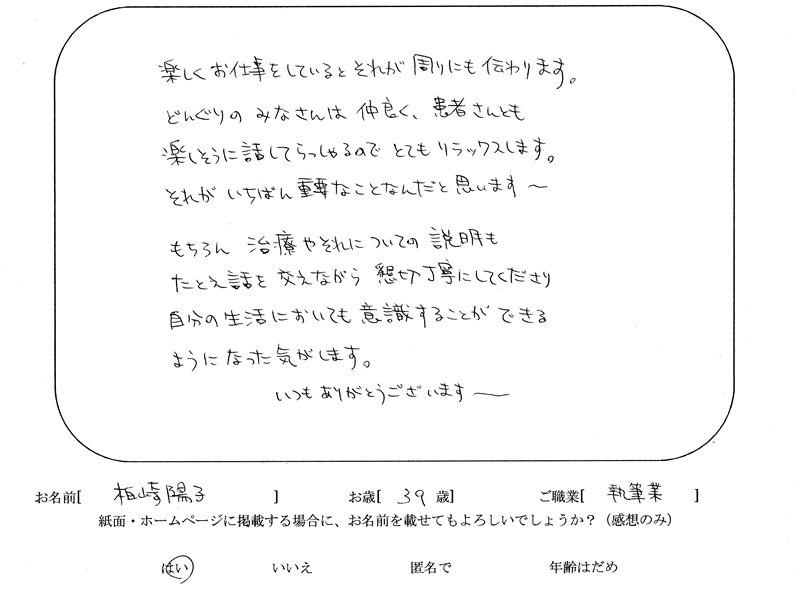 楽しくお仕事をしているとそれが周りにも伝わります。
どんぐりの みなさんは 仲良く、患者さんとも
楽しそうに話してらっしゃるので とても リラックスします。
それが いちばん 重要なことなんだと思います〜
もちろん 治療やそれについての 説明も
たとえ話を 交えながら 懇切丁寧にしてくださり
自分の生活においても 意識することが できる
ように なった気がします。
いつも ありがとうございます〜
お名前[ 柏崎陽子 ] お歳[ 39 歳] ご職業[ 執筆業 ]
紙面・ホームページに掲載する場合に、お名前を載せてもよろしいでしょうか？（感想のみ）
はい いいえ 匿名で 年齢はだめ